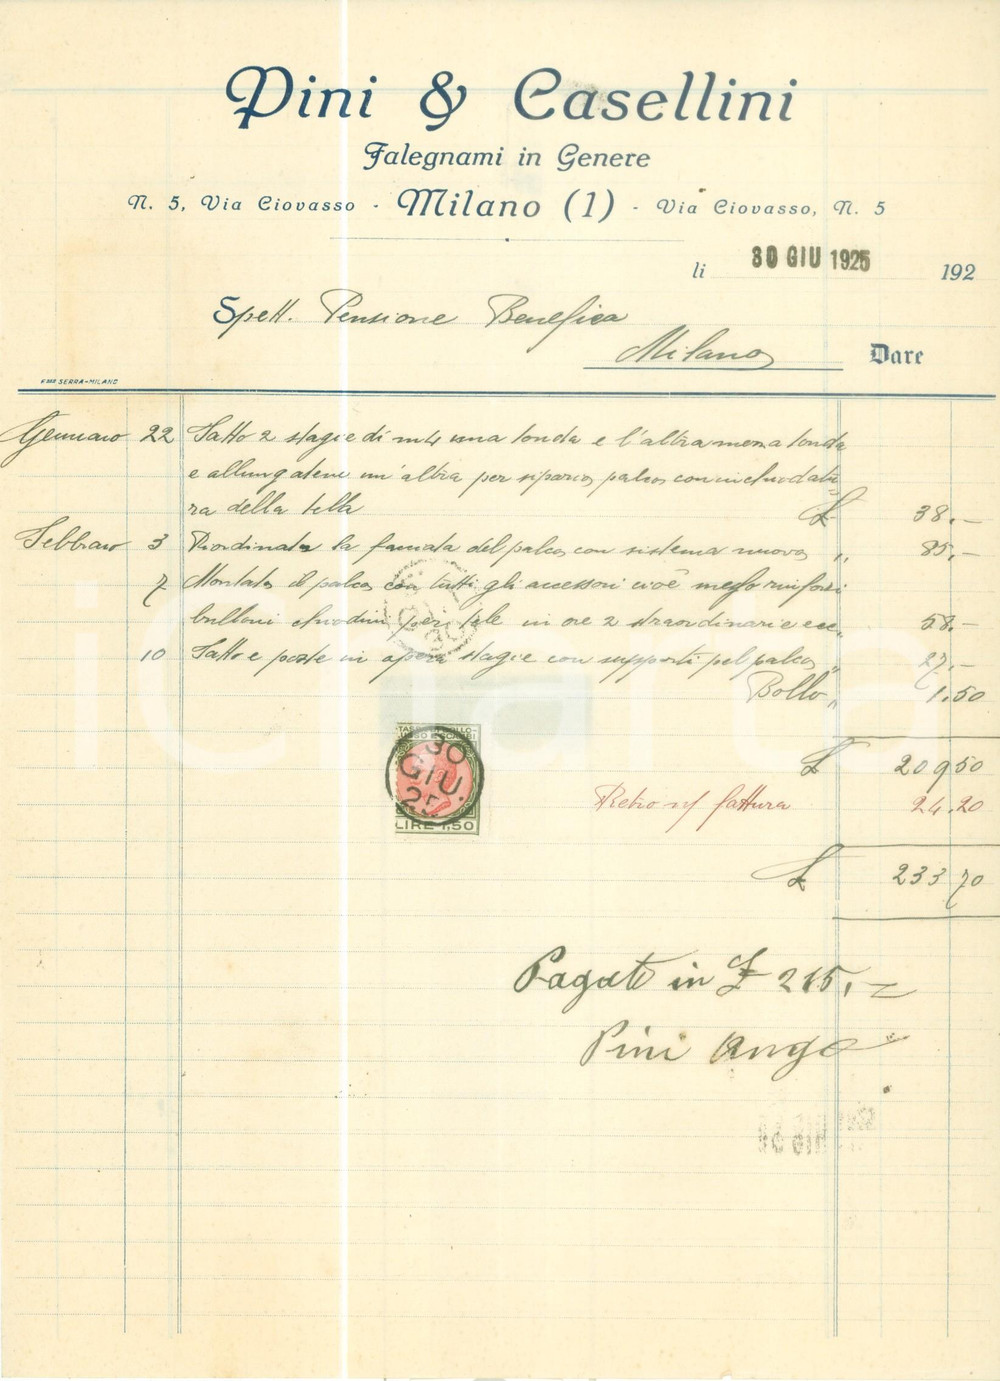 Pini & Casellini
Falegnami in Genere
N. 5, Via Ciovasso - Milano (1) - Via Ciovasso, N. 5
li 30 GIU 1925 192
Spett. Pensione Benefica
Milano Dare
SERRA-MILANO
Gennaio 22 Fatto 2 stagie di m 4 una tonda e l'altra mezza tonda
e un'altra per sipario palco con inchiodatu=
ra della tella £ 38.-
Febbraio 3 Riordinata la facciata del palco con sistema nuovo " 85.-
7 Montato il palco con tutti gli accessori cioè messo rinforzi
bulloni chiodini per tele in ore 2 straordinarie ecc. 58.-
10 Fatto e poste in opera stagie con supporti pel palco " 27.-
Bollo " 1.50
30
GIU.
25
LIRE 1,50
£ 209 50
fattura 24.20
£ 233 70
Pagato in £ 215.=
Pini Ang